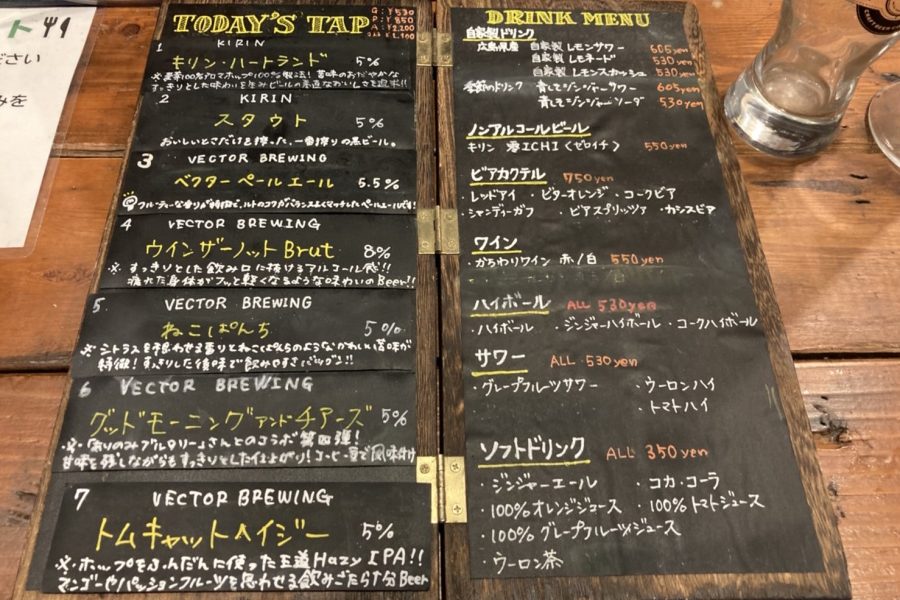 ト
ださい
みを
TODAY'S TAP
G : ¥530
P : ¥850
1 KIRIN
キリン・ハートランド 5%
2 KIRIN
スタウト 5%
おいしいとこだけを搾った、一番搾りの黒ビール。
3 VECTOR BREWING
ベクターペールエール 5.5%
4 VECTOR BREWING
ウインザーノット Brut 8%
※すっきりとした飲み口に抜けるアルコール感!!
疲れた身体がフッと軽くなるような味わいのBeer!!
5 VECTOR BREWING
ねこぱんち 5%
※シトラスを想わせる香りとねこぱんちのようなかわいい苦味が
特徴!すっきりした後味で飲みやすさバツグン!!
6 VECTOR BREWING
グッドモーニングアンドチアーズ 5%
さんとのコラボ第四弾!
甘味を残しながらもすっきりとした仕上がり!コーヒー豆で風味付け
7 VECTOR BREWING
トムキャットヘイジー 5%
※ホップをふんだんに使った王道Hazy IPA!!
マンゴーやパッションフルーツを思わせる飲みごたえ十分Beer
DRINK MENU
自家製ドリンク
広島県産 自家製 レモンサワー 605yen
自家製 レモネード 530yen
自家製 レモンスカッシュ 530yen
季節のドリンク 青じそジンジャーサワー 605yen
青じそジンジャーソーダ 530yen
ノンアルコールビール
キリン 零ICHI〈ゼロイチ〉 550yen
ビアカクテル 750yen
・レッドアイ ・ビターオレンジ ・コークビア
・シャンディーガフ ・ビアスプリッツァ ・カシスビア
ワイン
・かちわりワイン 赤/白 550yen
ハイボール ALL 530yen
・ハイボール ・ジンジャーハイボール ・コークハイボール
サワー ALL 530yen
・グレープフルーツサワー ・ウーロンハイ
・トマトハイ
ソフトドリンク ALL 350yen
・ジンジャーエール ・コカ・コーラ
・100%オレンジジュース ・100%トマトジュース
・100%グレープフルーツジュース
・ウーロン茶